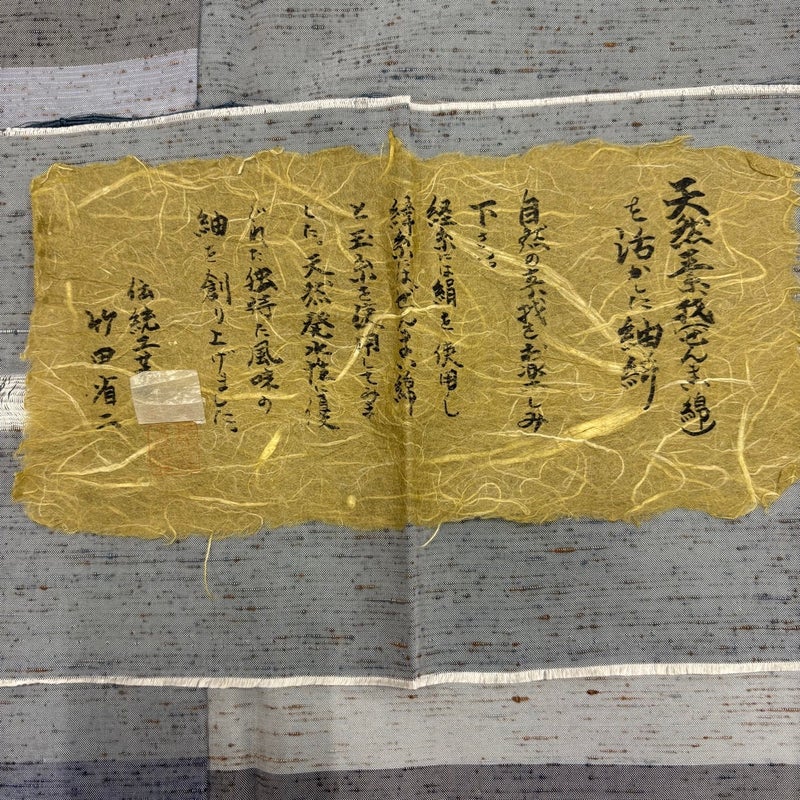 天然素材(ぜんまい綿)
を活かした紬絣
自然の素材をお楽しみ
下さい
経糸には絹を使用し
緯糸は、ぜんまい綿
と玉糸を使用してみま
した。天然発水性に優
ぐれた独特な風味の
紬を創り上げました。
伝統工芸
竹田省二